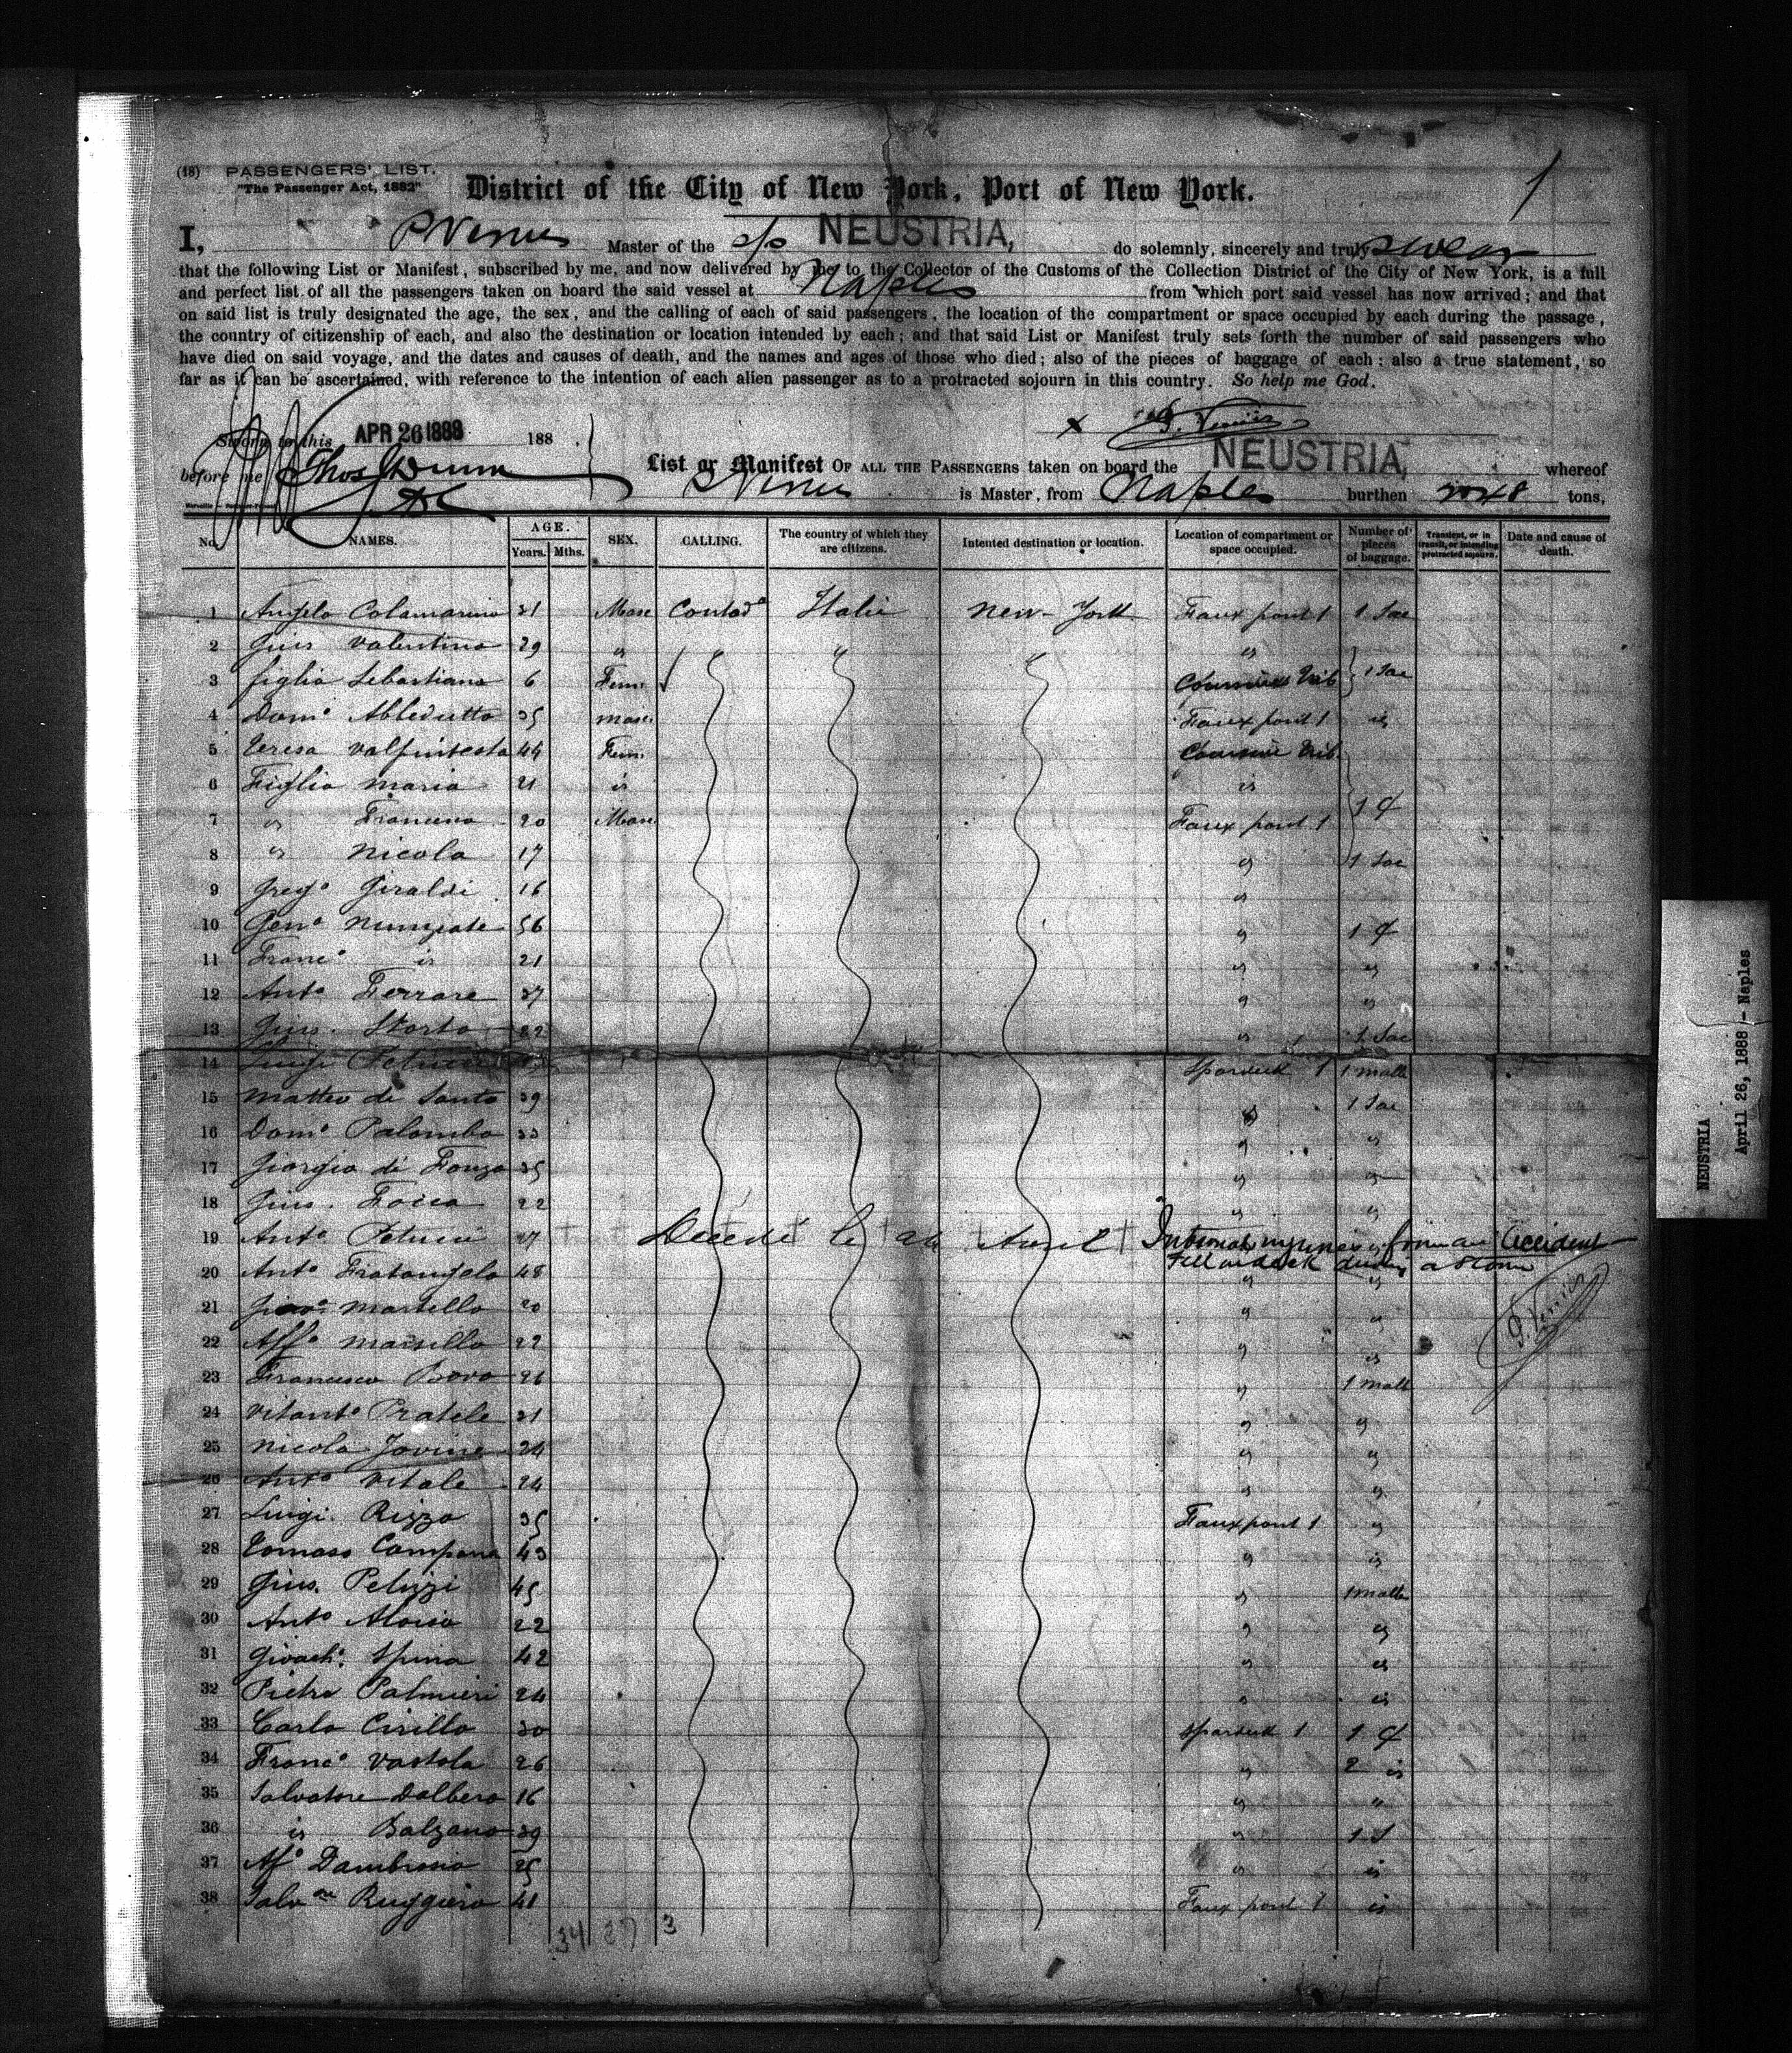 (18) PASSENGERS' LIST.
"The Passenger Act, 1882"
District of the City of New York, Port of New York.
1
I, P Vernis Master of the s/s NEUSTRIA, do solemnly, sincerely and truly swear
that the following List or Manifest, subscribed by me, and now delivered by me to the Collector of the Customs of the Collection District of the City of New York, is a full
and perfect list of all the passengers taken on board the said vessel at Naples from which port said vessel has now arrived; and that
on said list is truly designated the age, the sex, and the calling of each of said passengers, the location of the compartment or space occupied by each during the passage,
the country of citizenship of each, and also the destination or location intended by each; and that said List or Manifest truly sets forth the number of said passengers who
have died on said voyage, and the dates and causes of death, and the names and ages of those who died; also of the pieces of baggage of each; also a true statement, so
far as it can be ascertained, with reference to the intention of each alien passenger as to a protracted sojourn in this country. So help me God.
Sworn to this APR 26 1888 188 .
x
before me Thos Dunn
List or Manifest OF ALL THE PASSENGERS taken on board the NEUSTRIA, whereof
is Master, from Naples burthen tons,
No. NAMES. AGE. Years. Mths. SEX. CALLING. The country of which they are citizens. Intented destination or location. Location of compartment or space occupied. Number of pieces of baggage. Transient, or in transit, or intending protracted sojourn. Date and cause of death.
1 Angelo Colamarino 31 Masc Contada Italie New-York Faux pont 1 1 Sac
2 Gius Valentino 29 "
3 figlia Sebastiana 6 Fem. 1 Sac
4 Domo 35 masc. Faux pont 1 is
5 Teresa 44 Fem.
6 Figlia Maria 21 is is
7 is 20 Masc. Faux pont 1 1 C
8 is Nicola 17 " 1 Sac
9 Grego Giraldi 16 "
10 Geno Nunziate 56 " 1 C
11 Franco is 21 " "
12 Anto Ferrare 37 " "
13 Gius. Storto 22 " 1 Sac
14 Luigi spardeck 1 1 malle
15 Matteo di Santo 39 " 1 Sac
16 Domo Palombo 33 " "
17 Giorgio di Fonzo 35 " "
18 Gius. Focca 22 " "
19 Anto 27 Décédé le Avril Internal injuries from an Accident
Fell on deck during a storm
20 Anto Fratangelo 48 " "
21 Martello 20 " "
22 Alfo Marsillo 22 " is
23 Francesco Bovo 26 " 1 malle
24 Vitanto Pratele 31 " "
25 Nicola Jovine 24 " "
26 Anto Vitale 24 " "
27 Luigi Rizzo 35 Faux pont 1 "
28 Tomaso Campana 43 " is
29 Gius. Peluzzi 45 " 1 malle
30 Anto Aloisio 22 " "
31 Gioacho. Spina 42 " "
32 Pietro Palmieri 24 " is
33 Carlo Cirillo 30 spardeck 1 1 C
34 Franco Vastola 26 " 2 is
35 Salvatore Dalbero 16 " "
36 is Balzano 39 " 1 S
37 Alfo Dambrosio 25 " is
38 Salvre Ruggiero 41 Faux pont 1 is
34 37 3
NEUSTRIA
April 26, 1888 - Naples